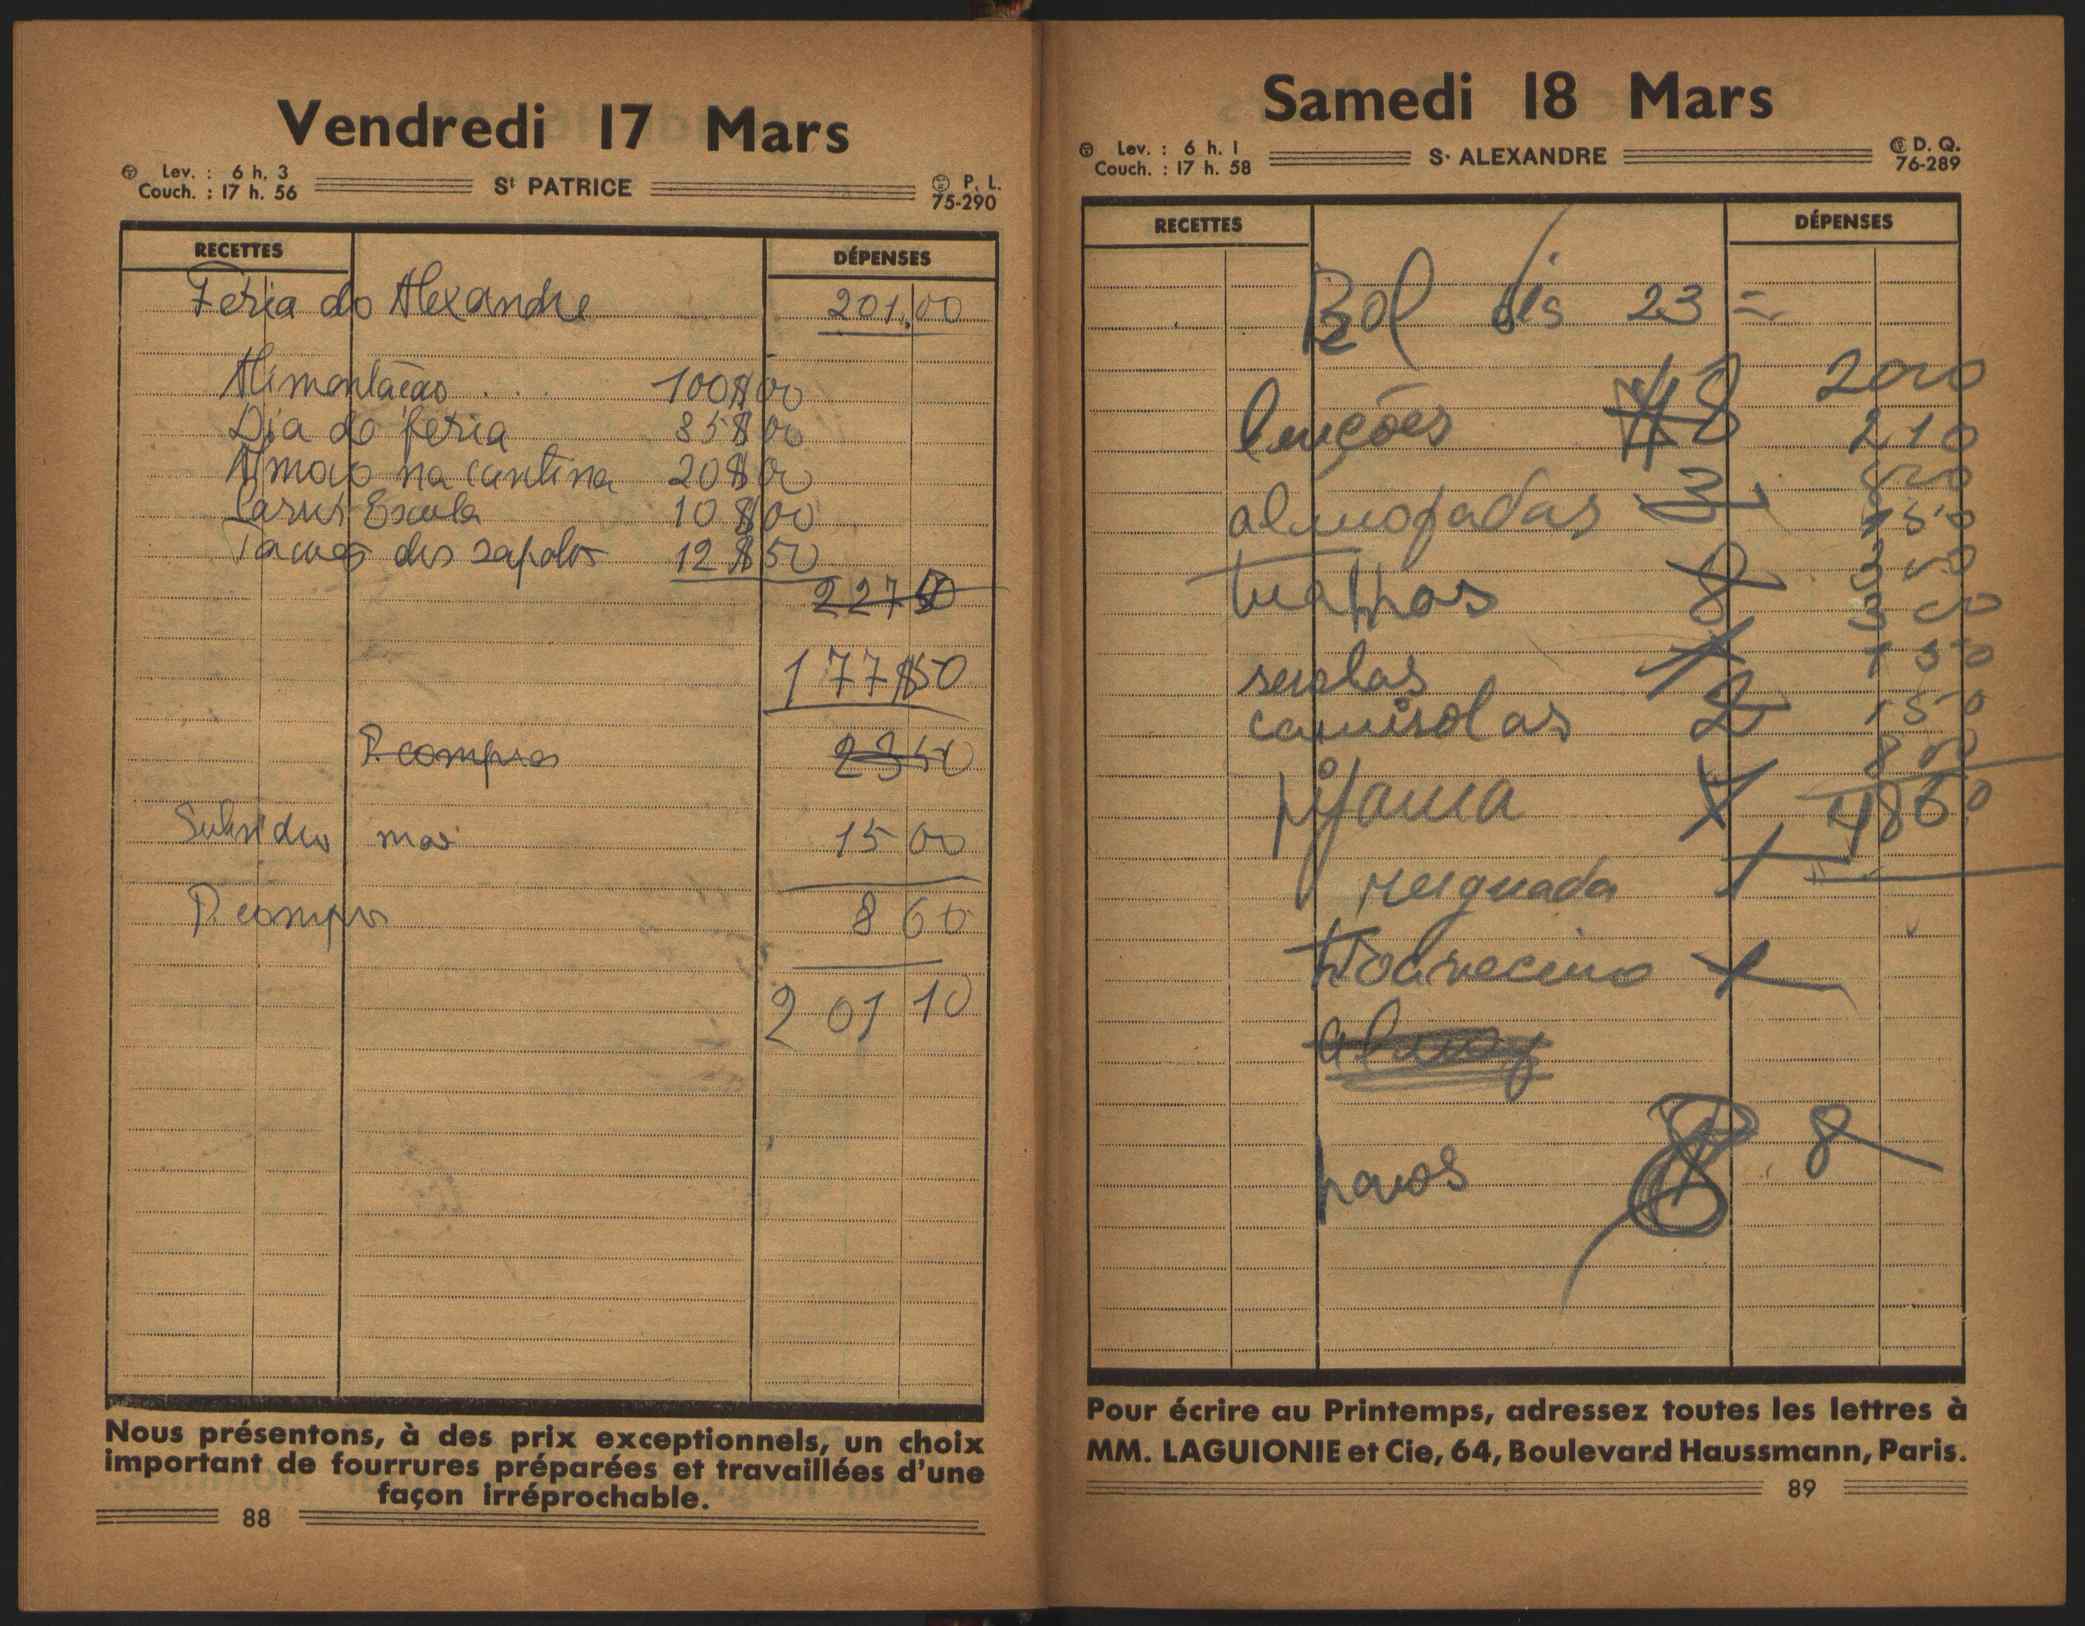 Vendredi 17 Mars
Lev. : 6 h. 3
Couch. : 17 h. 56
St PATRICE
P. L.
75-290
RECETTES
DÉPENSES
Feria do Alexandre 201,00
Alimentação . . . 100$00
Dia do feria 85$00
Almoço na cantina 20$00
Escola 10$00
dos sapatos 12$50
227 50
177$50
P. compras 23 50
Subsidio mai 15 00
P. compra 8 60
201 10
Nous présentons, à des prix exceptionnels, un choix
important de fourrures préparées et travaillées d'une
façon irréprochable.
88
Samedi 18 Mars
Lev. : 6 h. 1
Couch. : 17 h. 58
S. ALEXANDRE
D. Q.
76-289
RECETTES
DÉPENSES
Rol dis 23 =
lençóes 8 200
210
almofadas 3
150
trapos 8
300
serolas 1 150
camisolas 2 150
800
pijama 1 4860
resguada 1
panos 8 8
Pour écrire au Printemps, adressez toutes les lettres à
MM. LAGUIONIE et Cie, 64, Boulevard Haussmann, Paris.
89